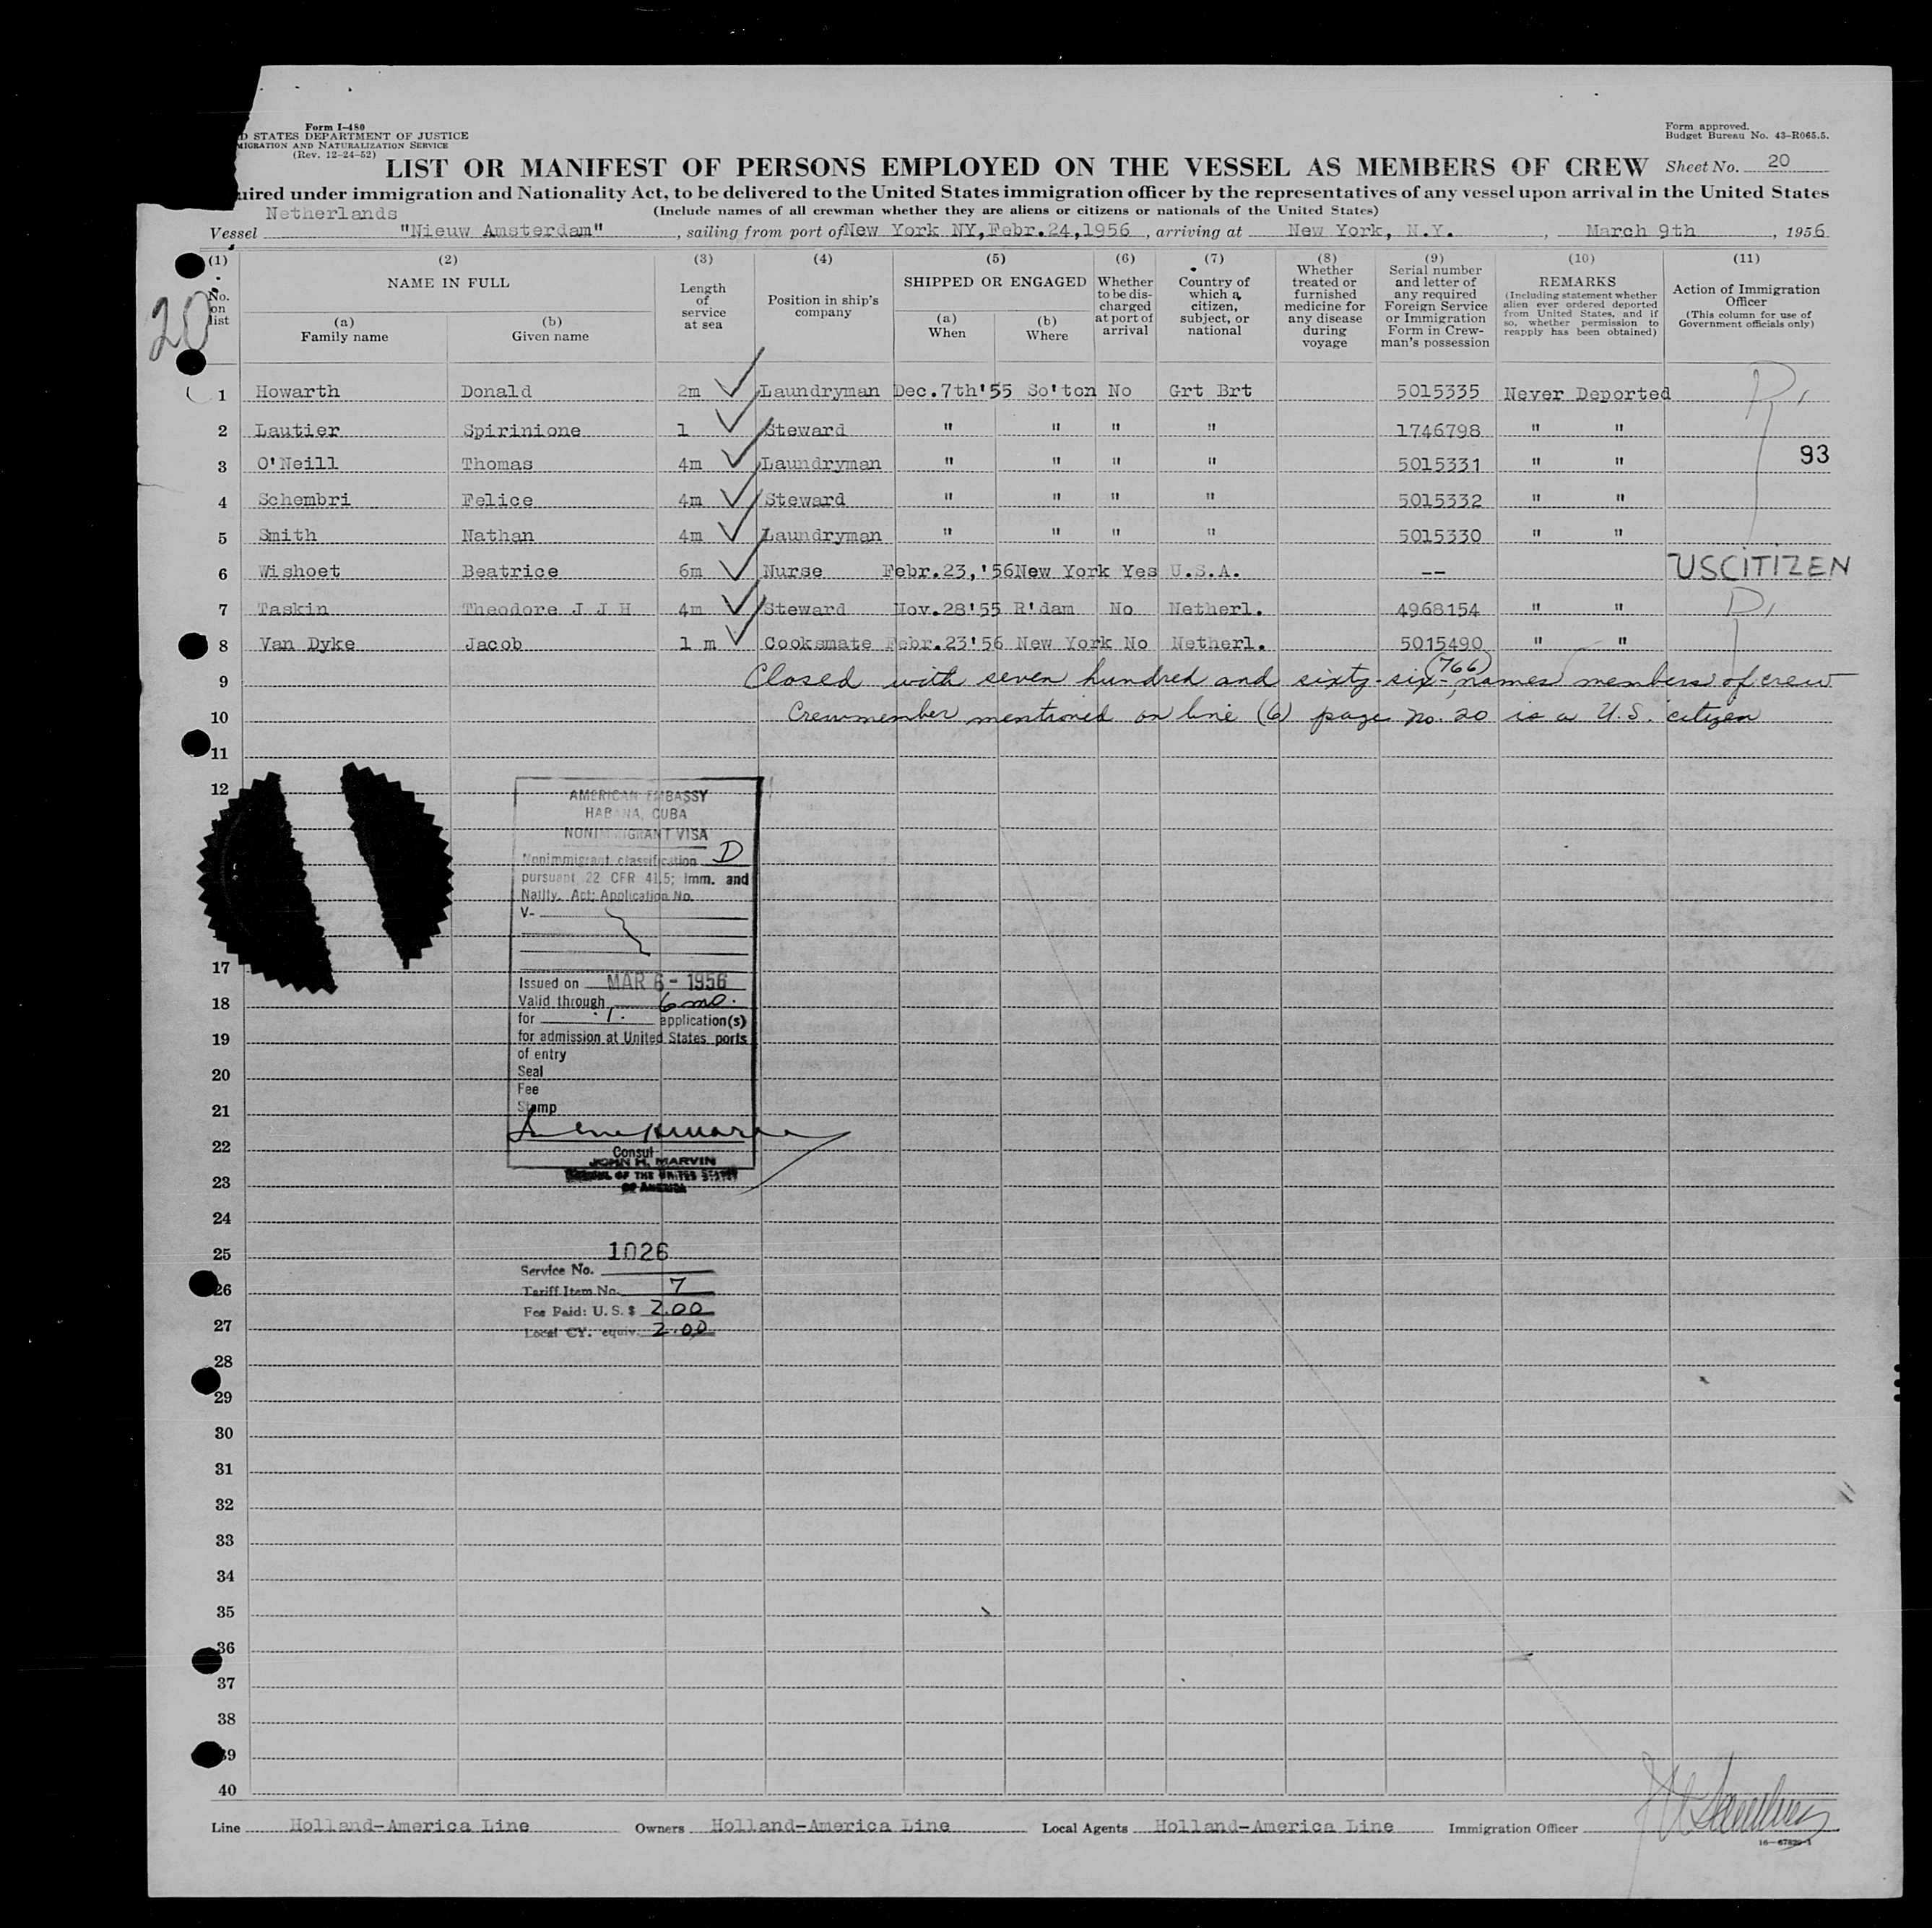 Form I-480
D STATES DEPARTMENT OF JUSTICE
MIGRATION AND NATURALIZATION SERVICE
(Rev. 12-24-52)
Form approved.
Budget Bureau No. 43-R065.5.
LIST OR MANIFEST OF PERSONS EMPLOYED ON THE VESSEL AS MEMBERS OF CREW
Sheet No. 20
uired under immigration and Nationality Act, to be delivered to the United States immigration officer by the representatives of any vessel upon arrival in the United States
Netherlands
(Include names of all crewman whether they are aliens or citizens or nationals of the United States)
Vessel "Nieuw Amsterdam", sailing from port of New York NY, Febr.24,1956, arriving at New York, N.Y., March 9th, 1956
20
(1) No. on list
(2) NAME IN FULL
(a) Family name
(b) Given name
(3) Length of service at sea
(4) Position in ship's company
(5) SHIPPED OR ENGAGED
(a) When
(b) Where
(6) Whether to be discharged at port of arrival
(7) Country of which a citizen, subject, or national
(8) Whether treated or furnished medicine for any disease during voyage
(9) Serial number and letter of any required Foreign Service or Immigration Form in Crewman's possession
(10) REMARKS (Including statement whether alien ever ordered deported from United States, and if so, whether permission to reapply has been obtained)
(11) Action of Immigration Officer (This column for use of Government officials only)
1 Howarth Donald 2m Laundryman Dec.7th'55 So'ton No Grt Brt 5015335 Never Deported
2 Lautier Spirinione 1 Steward " " " " 1746798 " "
3 O'Neill Thomas 4m Laundryman " " " " 5015331 " " 93
4 Schembri Felice 4m Steward " " " " 5015332 " "
5 Smith Nathan 4m Laundryman " " " " 5015330 " "
6 Wishoet Beatrice 6m Nurse Febr.23,'56 New York Yes U.S.A. -- US CITIZEN
7 Taskin Theodore J J H 4m Steward Nov.28'55 R'dam No Netherl. 4968154 " " D,
8 Van Dyke Jacob 1 m Cooksmate Febr.23'56 New York No Netherl. 5015490 " "
9 Closed with seven hundred and sixty-six- (766) names members of crew
10 Crewmember mentioned on line (6) page no. 20 is a U.S. citizen
11
12
AMERICAN EMBASSY
HABANA, CUBA
NONIMMIGRANT VISA
Nonimmigrant classification D
pursuant 22 CFR 41.5; Imm. and
Natlty. Act; Application No.
V-
17
Issued on MAR 6 - 1956
18
Valid through 6 mo.
for 1. application(s)
19
for admission at United States ports
of entry
20
Seal
Fee
21
Stamp
22
Consul
JOHN H. MARVIN
23
CONSUL OF THE UNITED STATES
OF AMERICA
24
25
1026
Service No.
26
Tariff Item No. 7
Fee Paid: U.S.$ 2.00
27
Local CY. equiv. 2.00
28
29
30
31
32
33
34
35
36
37
38
39
40
Line Holland-America Line Owners Holland-America Line Local Agents Holland-America Line Immigration Officer